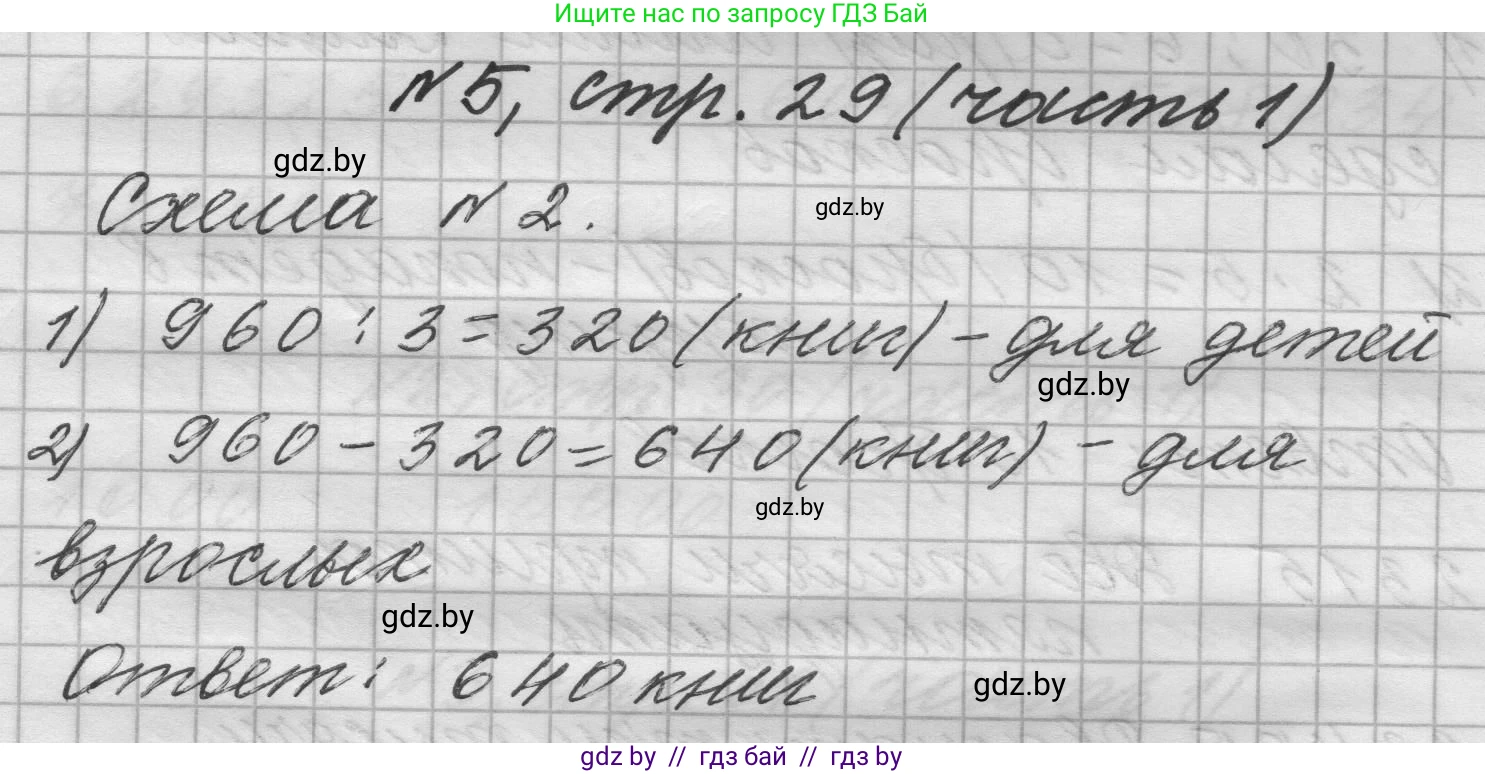 Ищите нас по запросу ГДЗ Бай
№5, стр. 29 (часть 1)
gdz.by
Схема № 2.
gdz.by
1) 960 : 3 = 320 (книг) - для детей
gdz.by
2) 960 - 320 = 640 (книг) - для
gdz.by
взрослых
gdz.by
Ответ: 640 книг
gdz.by
gdz.by // гдз бай // гдз by